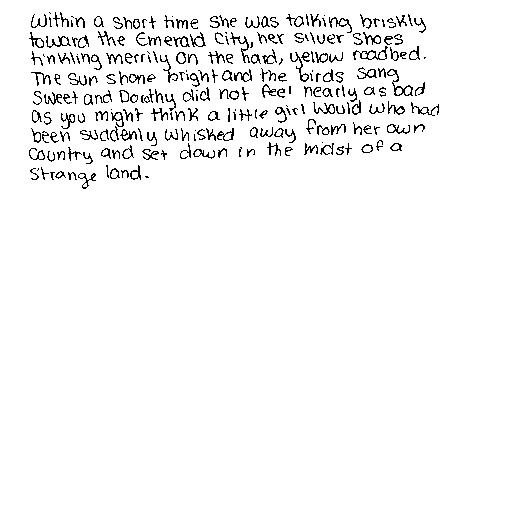 Within a short time she was talking briskly
toward the Emerald City, her silver shoes
tinkling merrily on the hard, yellow roadbed.
The sun shone bright and the birds sang
sweet and Dorothy did not feel nearly as bad
as you might think a little girl would who had
been suddenly whisked away from her own
country and set down in the midst of a
strange land.